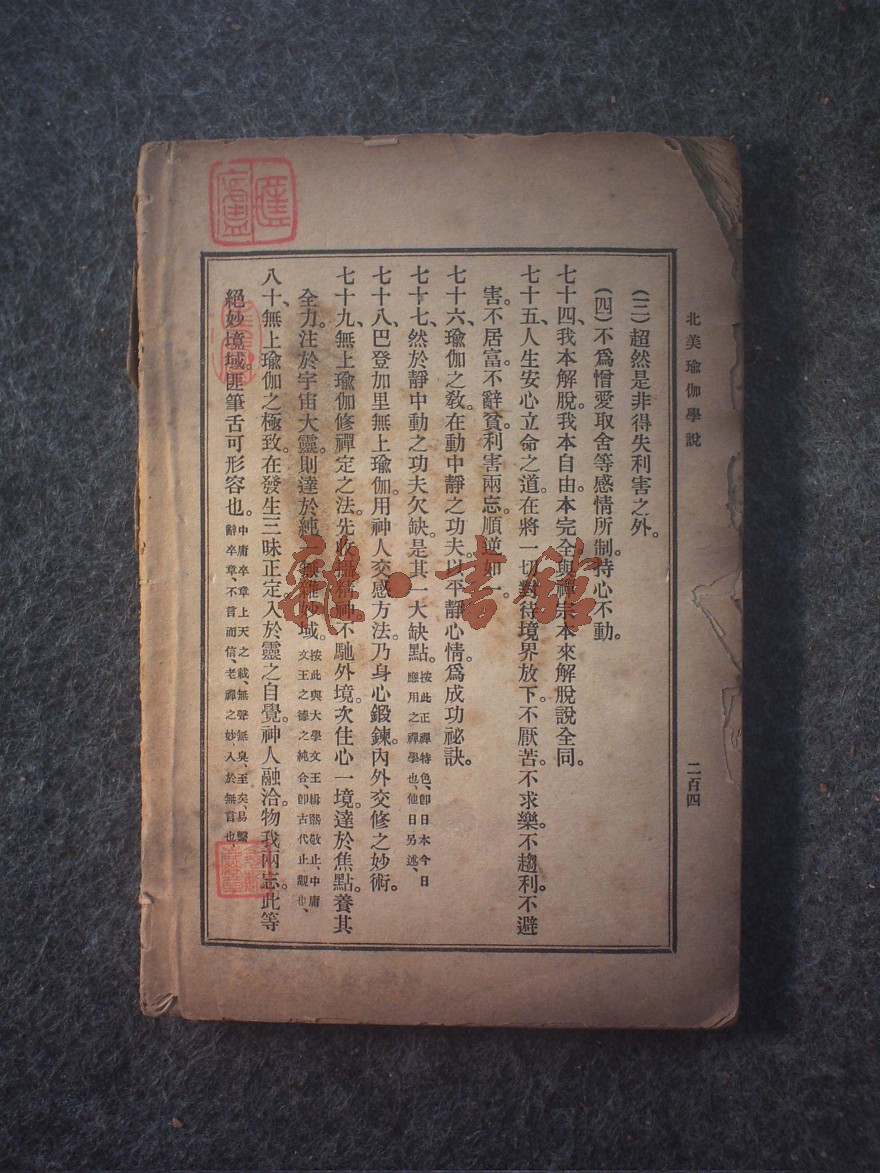 北美瑜伽學說
二百四
（三）超然是非得失利害之外。
（四）不爲憎愛取舍等感情所制。持心不動。
七十四、我本解脫。我本自由。本完全。與禪宗本來解脫說全同。
七十五、人生安心立命之道。在將一切對待境界放下。不厭苦。不求樂。不趨利。不避
害。不居富。不辭貧。利害兩忘。順逆如一。
七十六、瑜伽之敎。在動中靜之功夫。以平靜心情。爲成功祕訣。
七十七、然於靜中動之功夫欠缺。是其一大缺點。按此正禪特色、卽日本今日
應用之禪學也、他日另述、
七十八、巴登加里無上瑜伽。用神人交感方法。乃身心鍛鍊。內外交修之妙術。
七十九、無上瑜伽修禪定之法。先收攝精神。不馳外境。次住心一境。達於焦點。養其
全力。注於宇宙大靈。則達於純一無雜妙域。按此與大學文王緝熙敬止、中庸
文王之德之純合、卽古代止觀也、
八十、無上瑜伽之極致。在發生三昧正定。入於靈之自覺。神人融洽。物我兩忘。此等
絕妙境域。匪筆舌可形容也。中庸卒章上天之載、無聲無臭、至矣、易繫
辭卒章、不言而信、老禪之妙、入於無言也、
雜·書館
匯廬